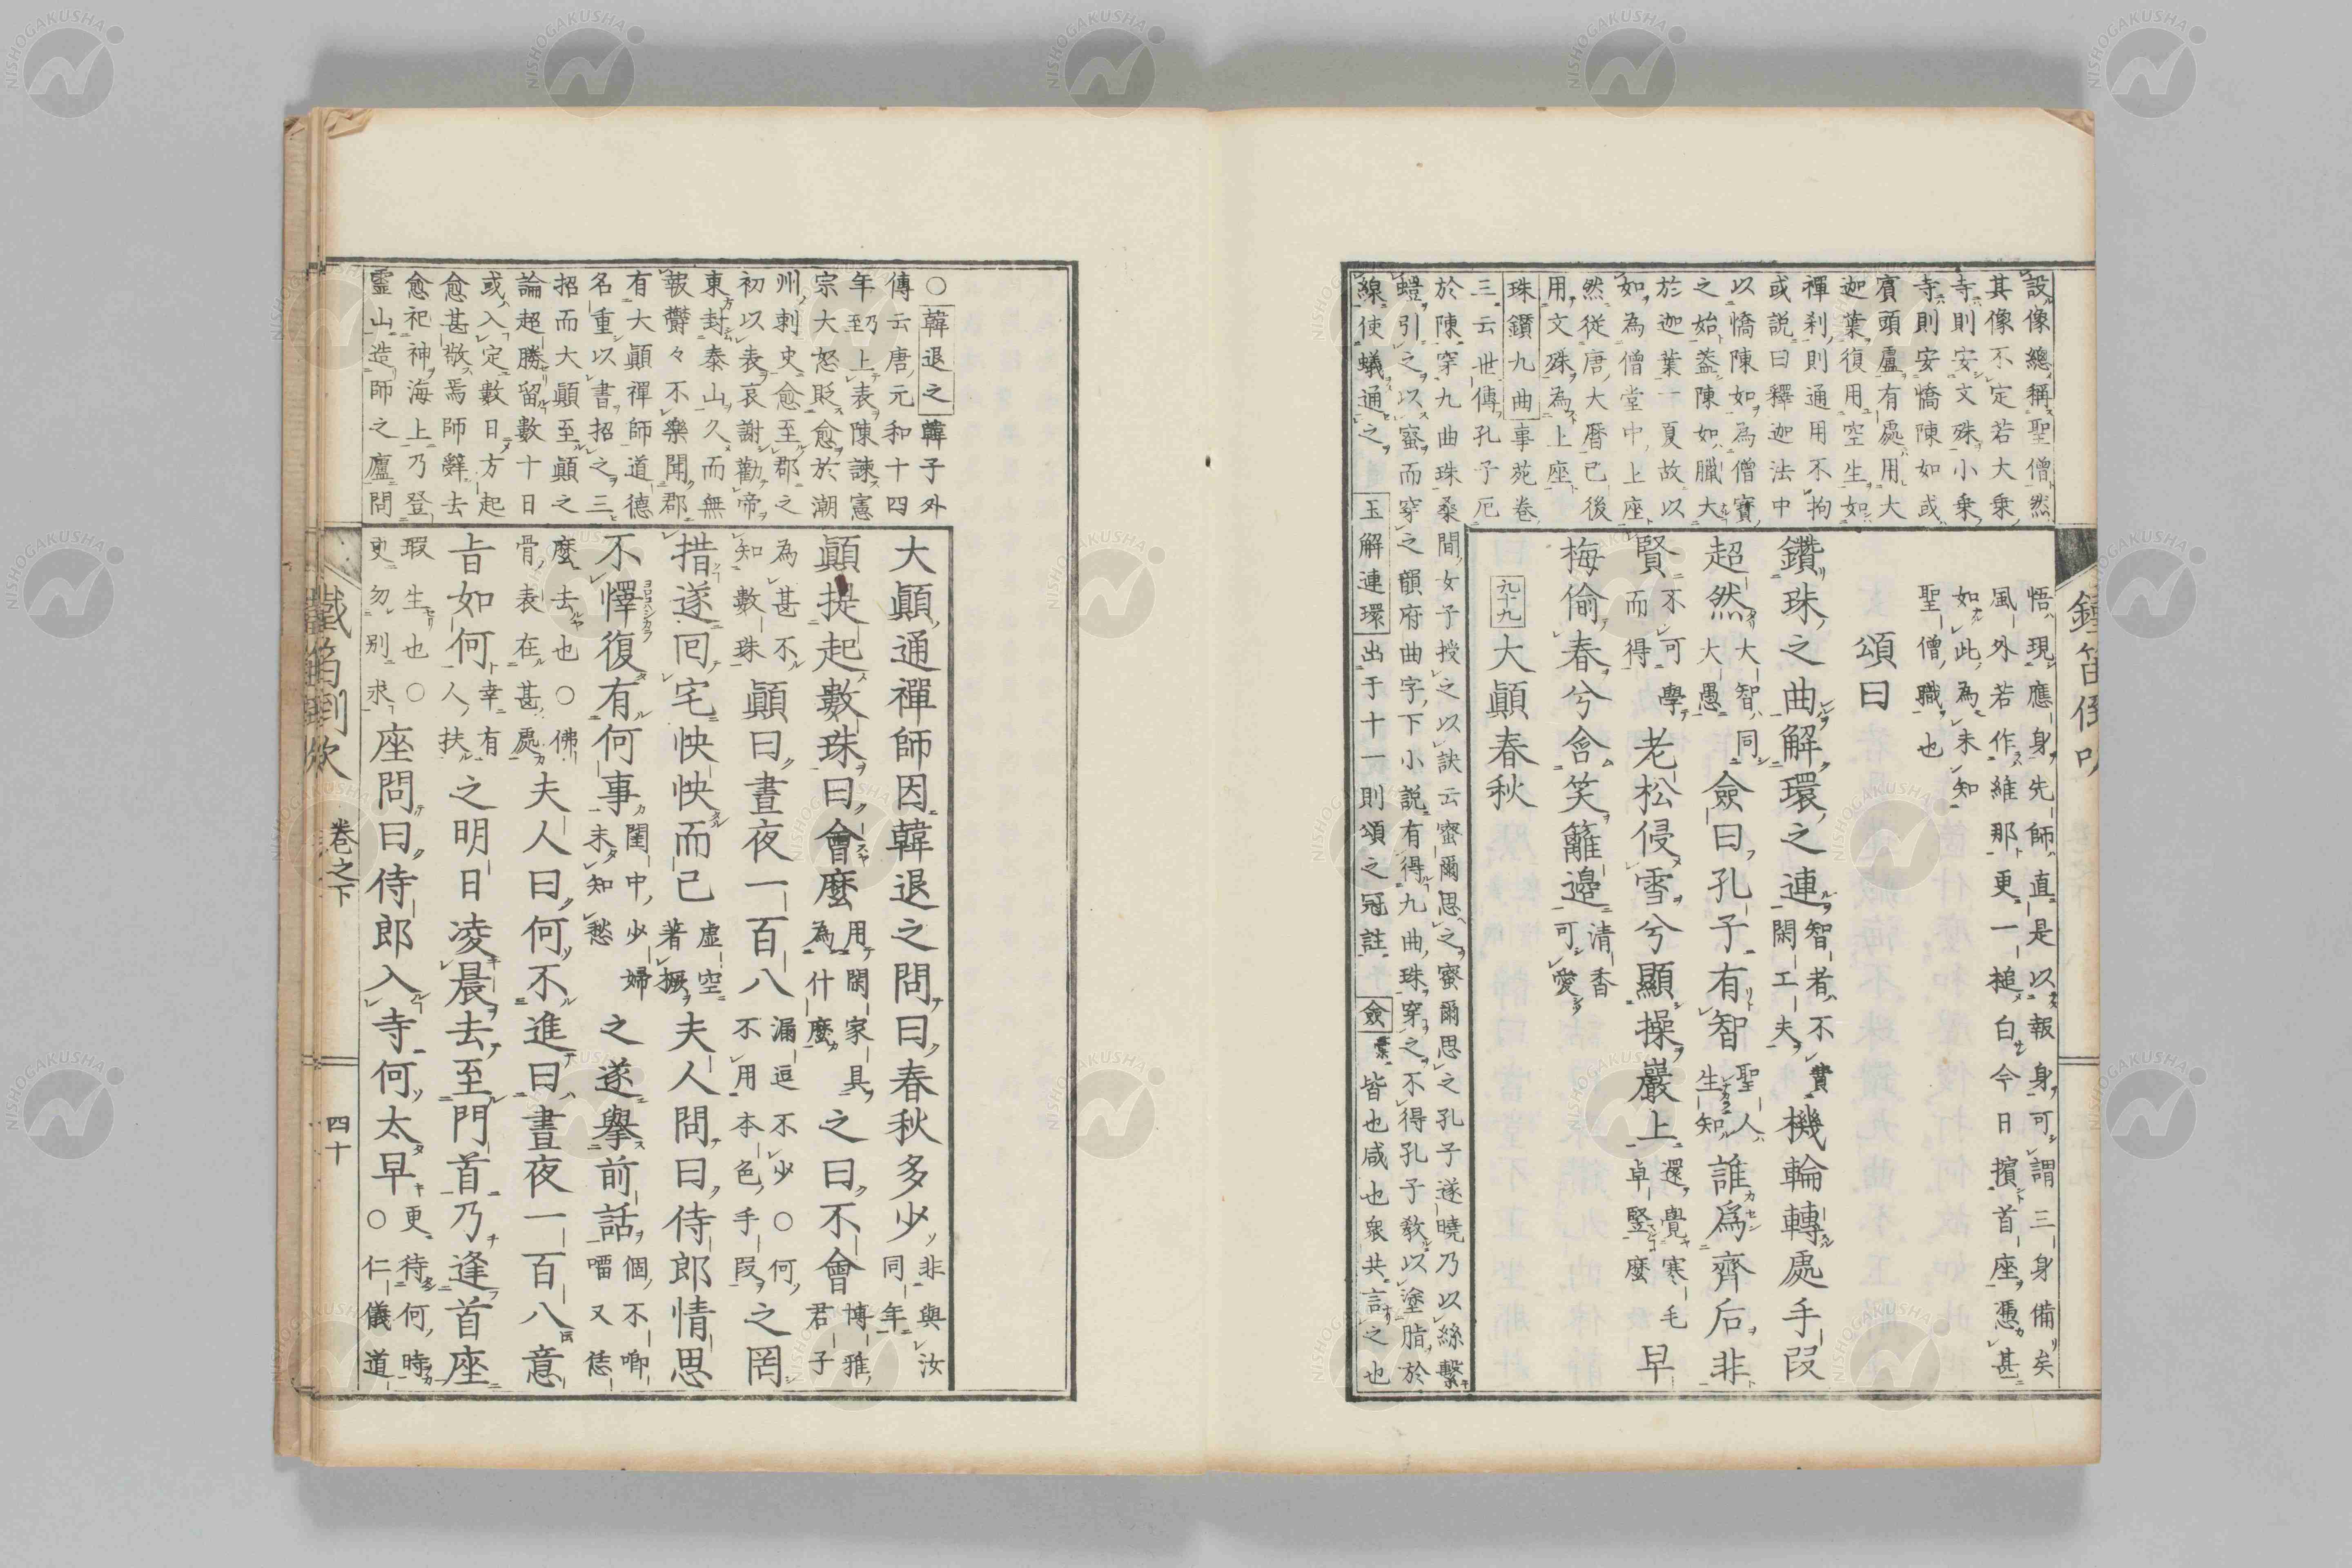 設像總稱聖僧然
其像不定若大乗
寺則安文殊小乗
寺則安憍陳如或
賓頭盧有處用大
迦葉復用空生如
禪刹則通用不拘
或説曰釋迦法中
以憍陳如為僧寶
之始葢陳如臘大
於迦葉一夏故以
如為僧堂中上座
然從唐大曆已後
用文殊為上座
珠鑽九曲事苑卷
三云世傳孔子厄
於陳穿九曲珠桑間女子授之以訣云蜜爾思之蜜爾思之孔子遂曉乃以絲繫
螘引之以蜜而穿之韻府曲字下小説有得九曲珠穿之不得孔子敎以塗脂於
線使蟻通之 玉解連環出于十一則頌之冠註 僉彙皆也咸也衆共言之也
悟現應身先師直是以報身可謂三身備矣
風外若作維那更一槌白今日擯首座憑甚
如此為未知
聖僧職也
頌曰
鑽珠之曲解環之連智者不賣閑工夫機輪轉處手叚
超然大智同大愚僉曰孔子有智聖人生知誰爲齊后非
賢不可學而得老松侵雪兮顯操巖上還覺寒毛卓竪麼早
梅偷春兮含笑籬邉清香可愛
九十九 大顚春秋
○韓退之韓子外
傳云唐元和十四
年至上表陳諫憲
宗大怒貶愈於潮
州刺史愈至郡之
初以表哀謝勸帝
東封泰山久而無
報欝々不樂聞郡
有大顚禪師道德
名重以書招之三
招而大顚至顚之
論超勝留數十日
或入定數日方起
愈甚敬焉師辭去
愈祀神海上乃登
靈山造師之廬問
大顚通禪師因韓退之問曰春秋多少非與汝同年
顚提起數珠曰會麼用閑家具為什麼之曰不會博雅君子
為甚不知數珠顚曰晝夜一百八漏逗不少○何不用本色手叚之罔
措遂囘宅怏怏而已虛空著橛夫人問曰侍郎情思
不懌復有何事閨中少婦未知愁之遂擧前話個不唧𠺕又恁
麼去也○佛骨表在甚處夫人曰何不進曰晝夜一百八意
旨如何幸有人扶之明日凌晨去至門首乃逢首座
瑕生也○更勿别求座問曰侍郎入寺何太早更待何時○仁儀道
鐵笛倒吹 卷之下 四十